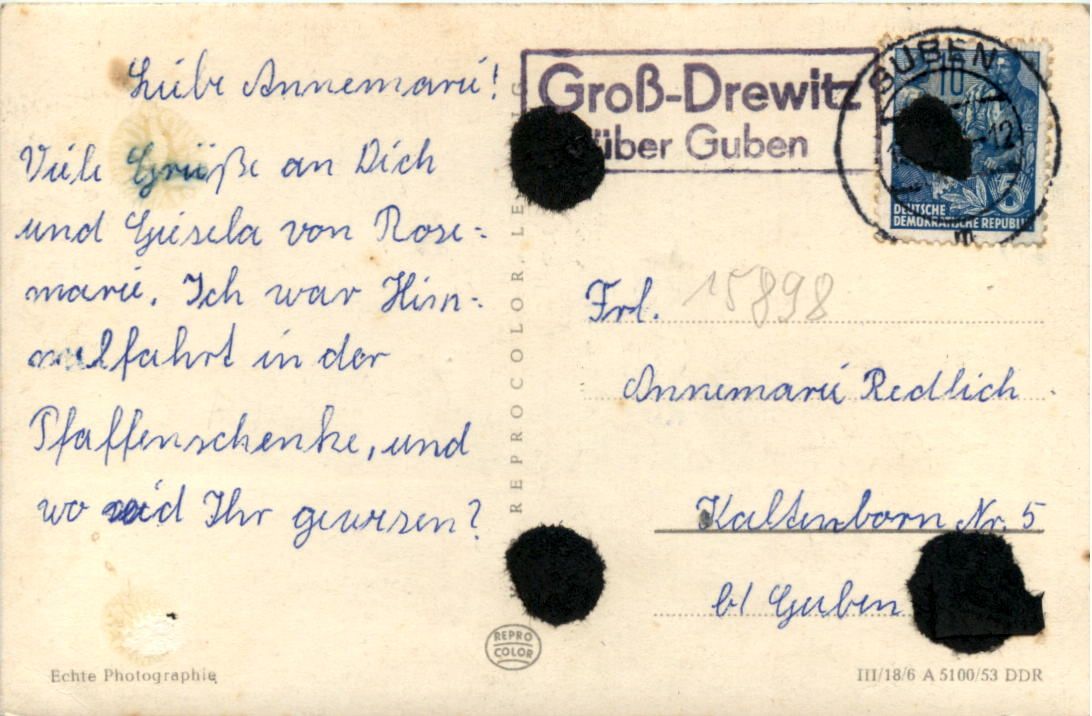 Liebe Annemarie!
Viele Grüße an Dich
und Gisela von Rose-
marie. Ich war Him-
melfahrt in der
Pfaffenschenke, und
wo seid Ihr gewesen?
Echte Photographie
REPROCOLOR
REPRO
COLOR
Groß-Drewitz
über Guben
GUBEN
10
-12
5
DEUTSCHE
DEMOKRATISCHE REPUBLIK
Frl. 15898
Annemarie Redlich
Kaltenborn Nr. 5
b/ Guben
III/18/6 A 5100/53 DDR